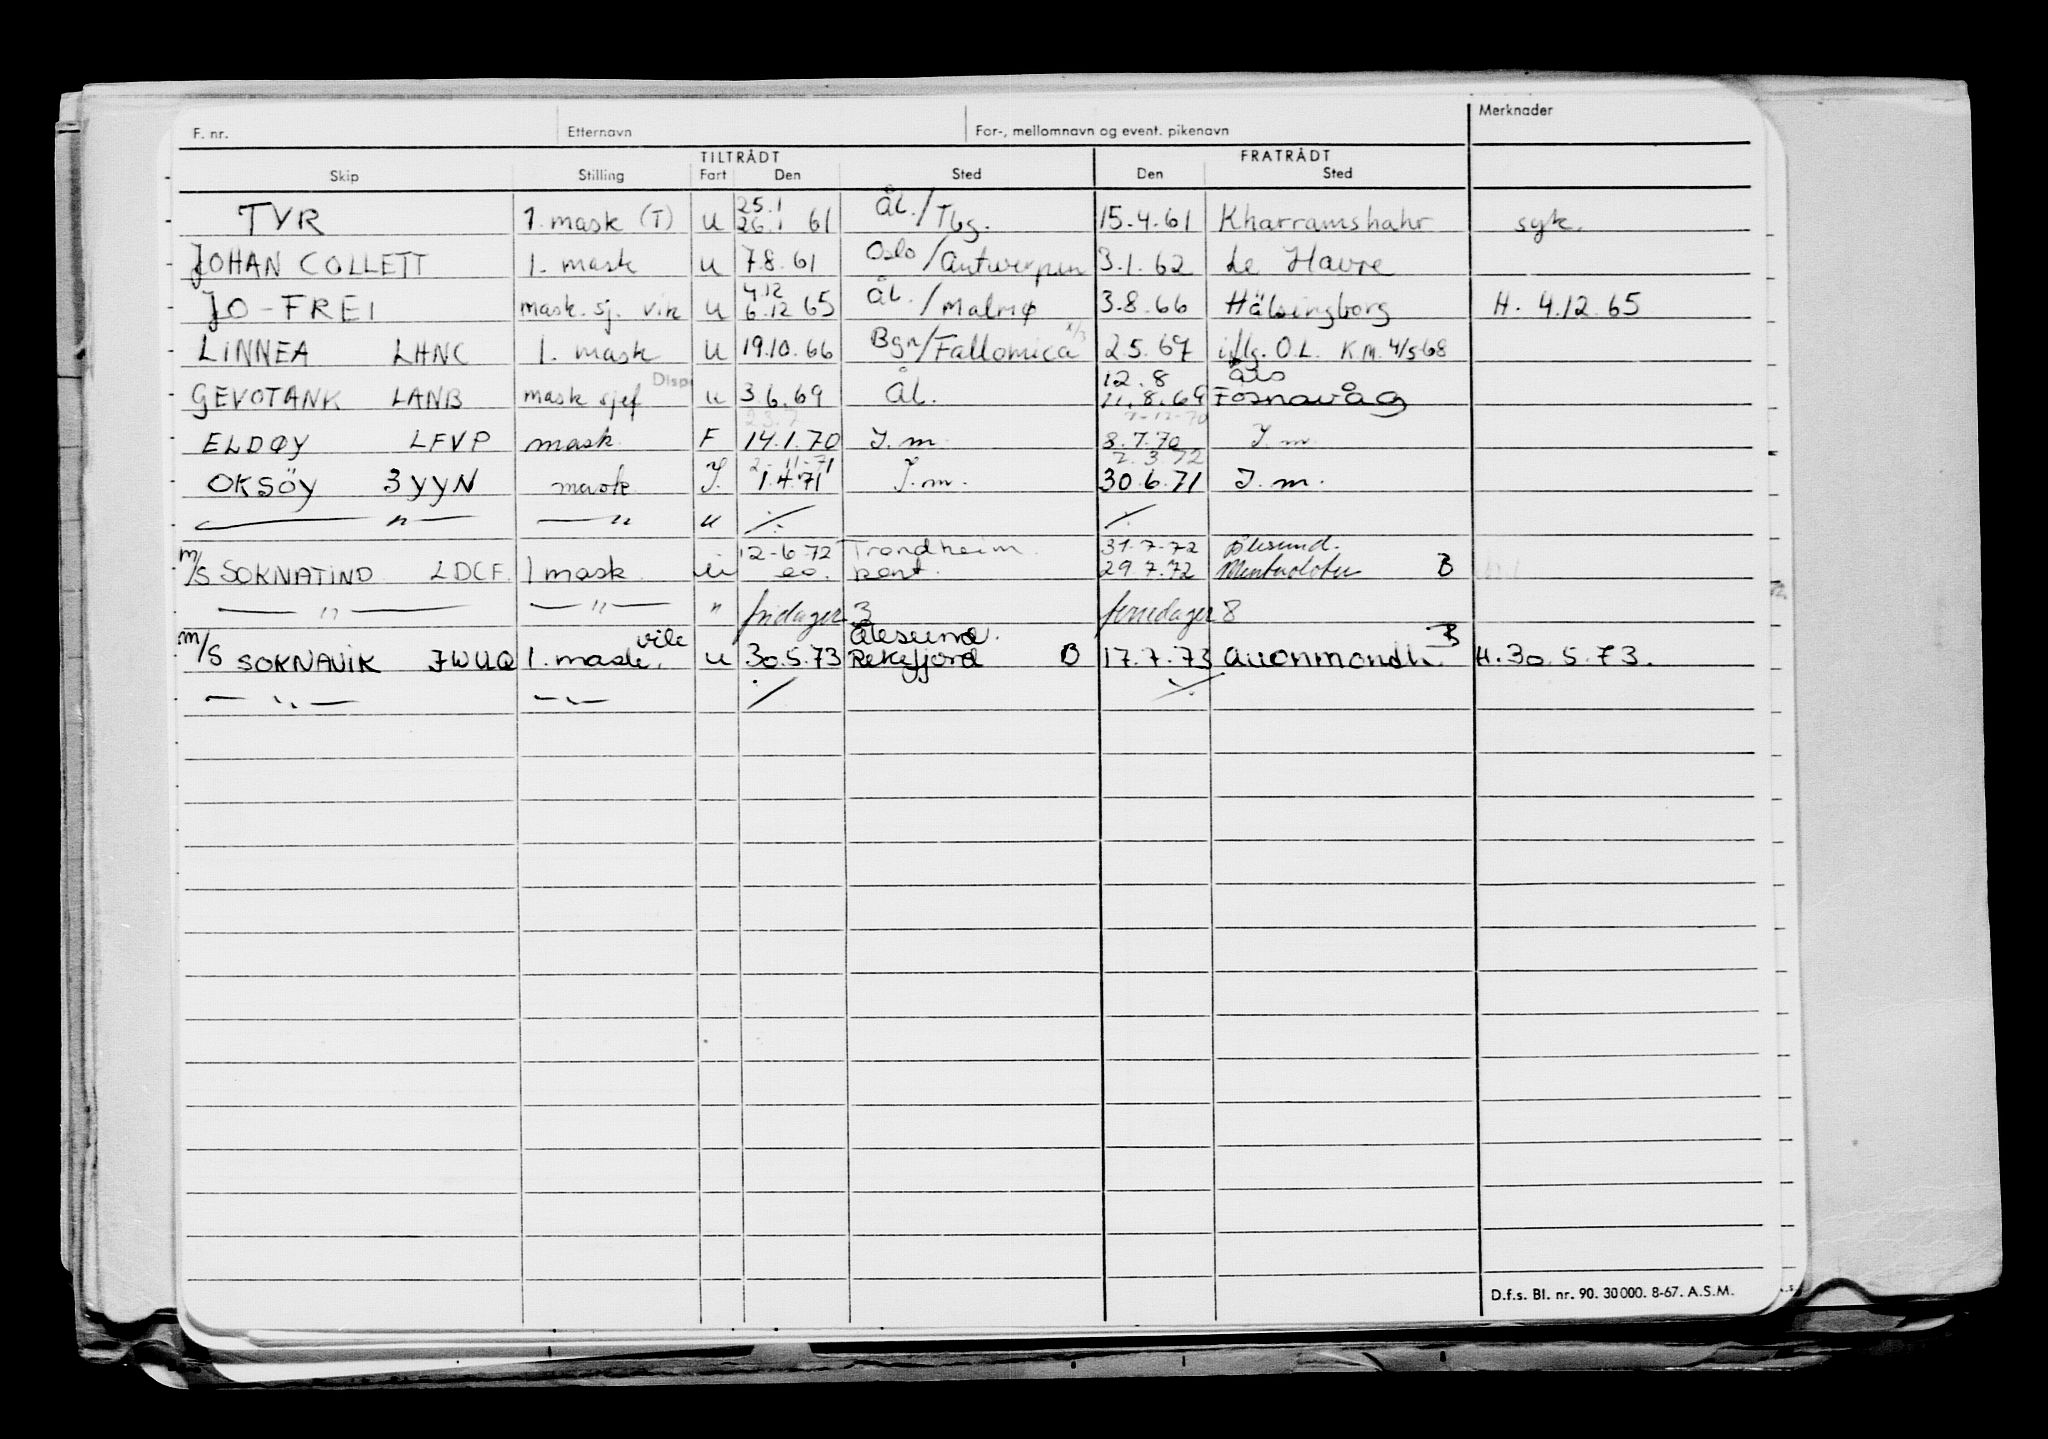 F. nr. Etternavn For-, mellomnavn og event. pikenavn Merknader
TILTRÅDT FRATRÅDT
Skip Stilling Fart Den Sted Den Sted
25.1 Ål./
TYR 1. mask (T) u 26.1 61 Tbg. 15.4.61 Kharramshahr syk.
JOHAN COLLETT 1. mask u 7.8.61 Oslo/Antwerpen 3.1.62 Le Havre
4.12
JO-FREI mask. sj. vik u 6.12 65 Ål./Malmø 3.8.66 Hälsingborg H. 4.12.65
LINNEA LHNC 1. mask u 19.10.66 Bgn/Fallomica 2.5.67 iflg. O.L. K.M. 4/5-68
Disp 12.8 Åls
GEVOTANK LANB mask sjef u 3.6.69 Ål. 11.8.69 Fosnavåg
23.7 2-12-70
ELDØY LFVP mask. F 14.1.70 I.m. 8.7.70 I.m.
2-11-71 2.3.72
OKSÖY 3YYN mask I. 1.4.71 I.m. 30.6.71 I.m.
— " — — " u ⁒ ⁒
12-6-72 Trondheim. 31.7.72 Ålesund.
m/S SOKNATIND LDCF 1 mask u kont. 29.7.72 B
— " — — " — " fridager 3 feriedager 8
vik Ålesund. B
m/S SOKNAVIK JWUQ 1. mask. u 30.5.73 Rekefjord B 17.7.73 Avonmondh. H. 30.5.73.
— " — — " — ⁒ ⁒
D.f.s. Bl. nr. 90. 30000. 8-67. A.S.M.